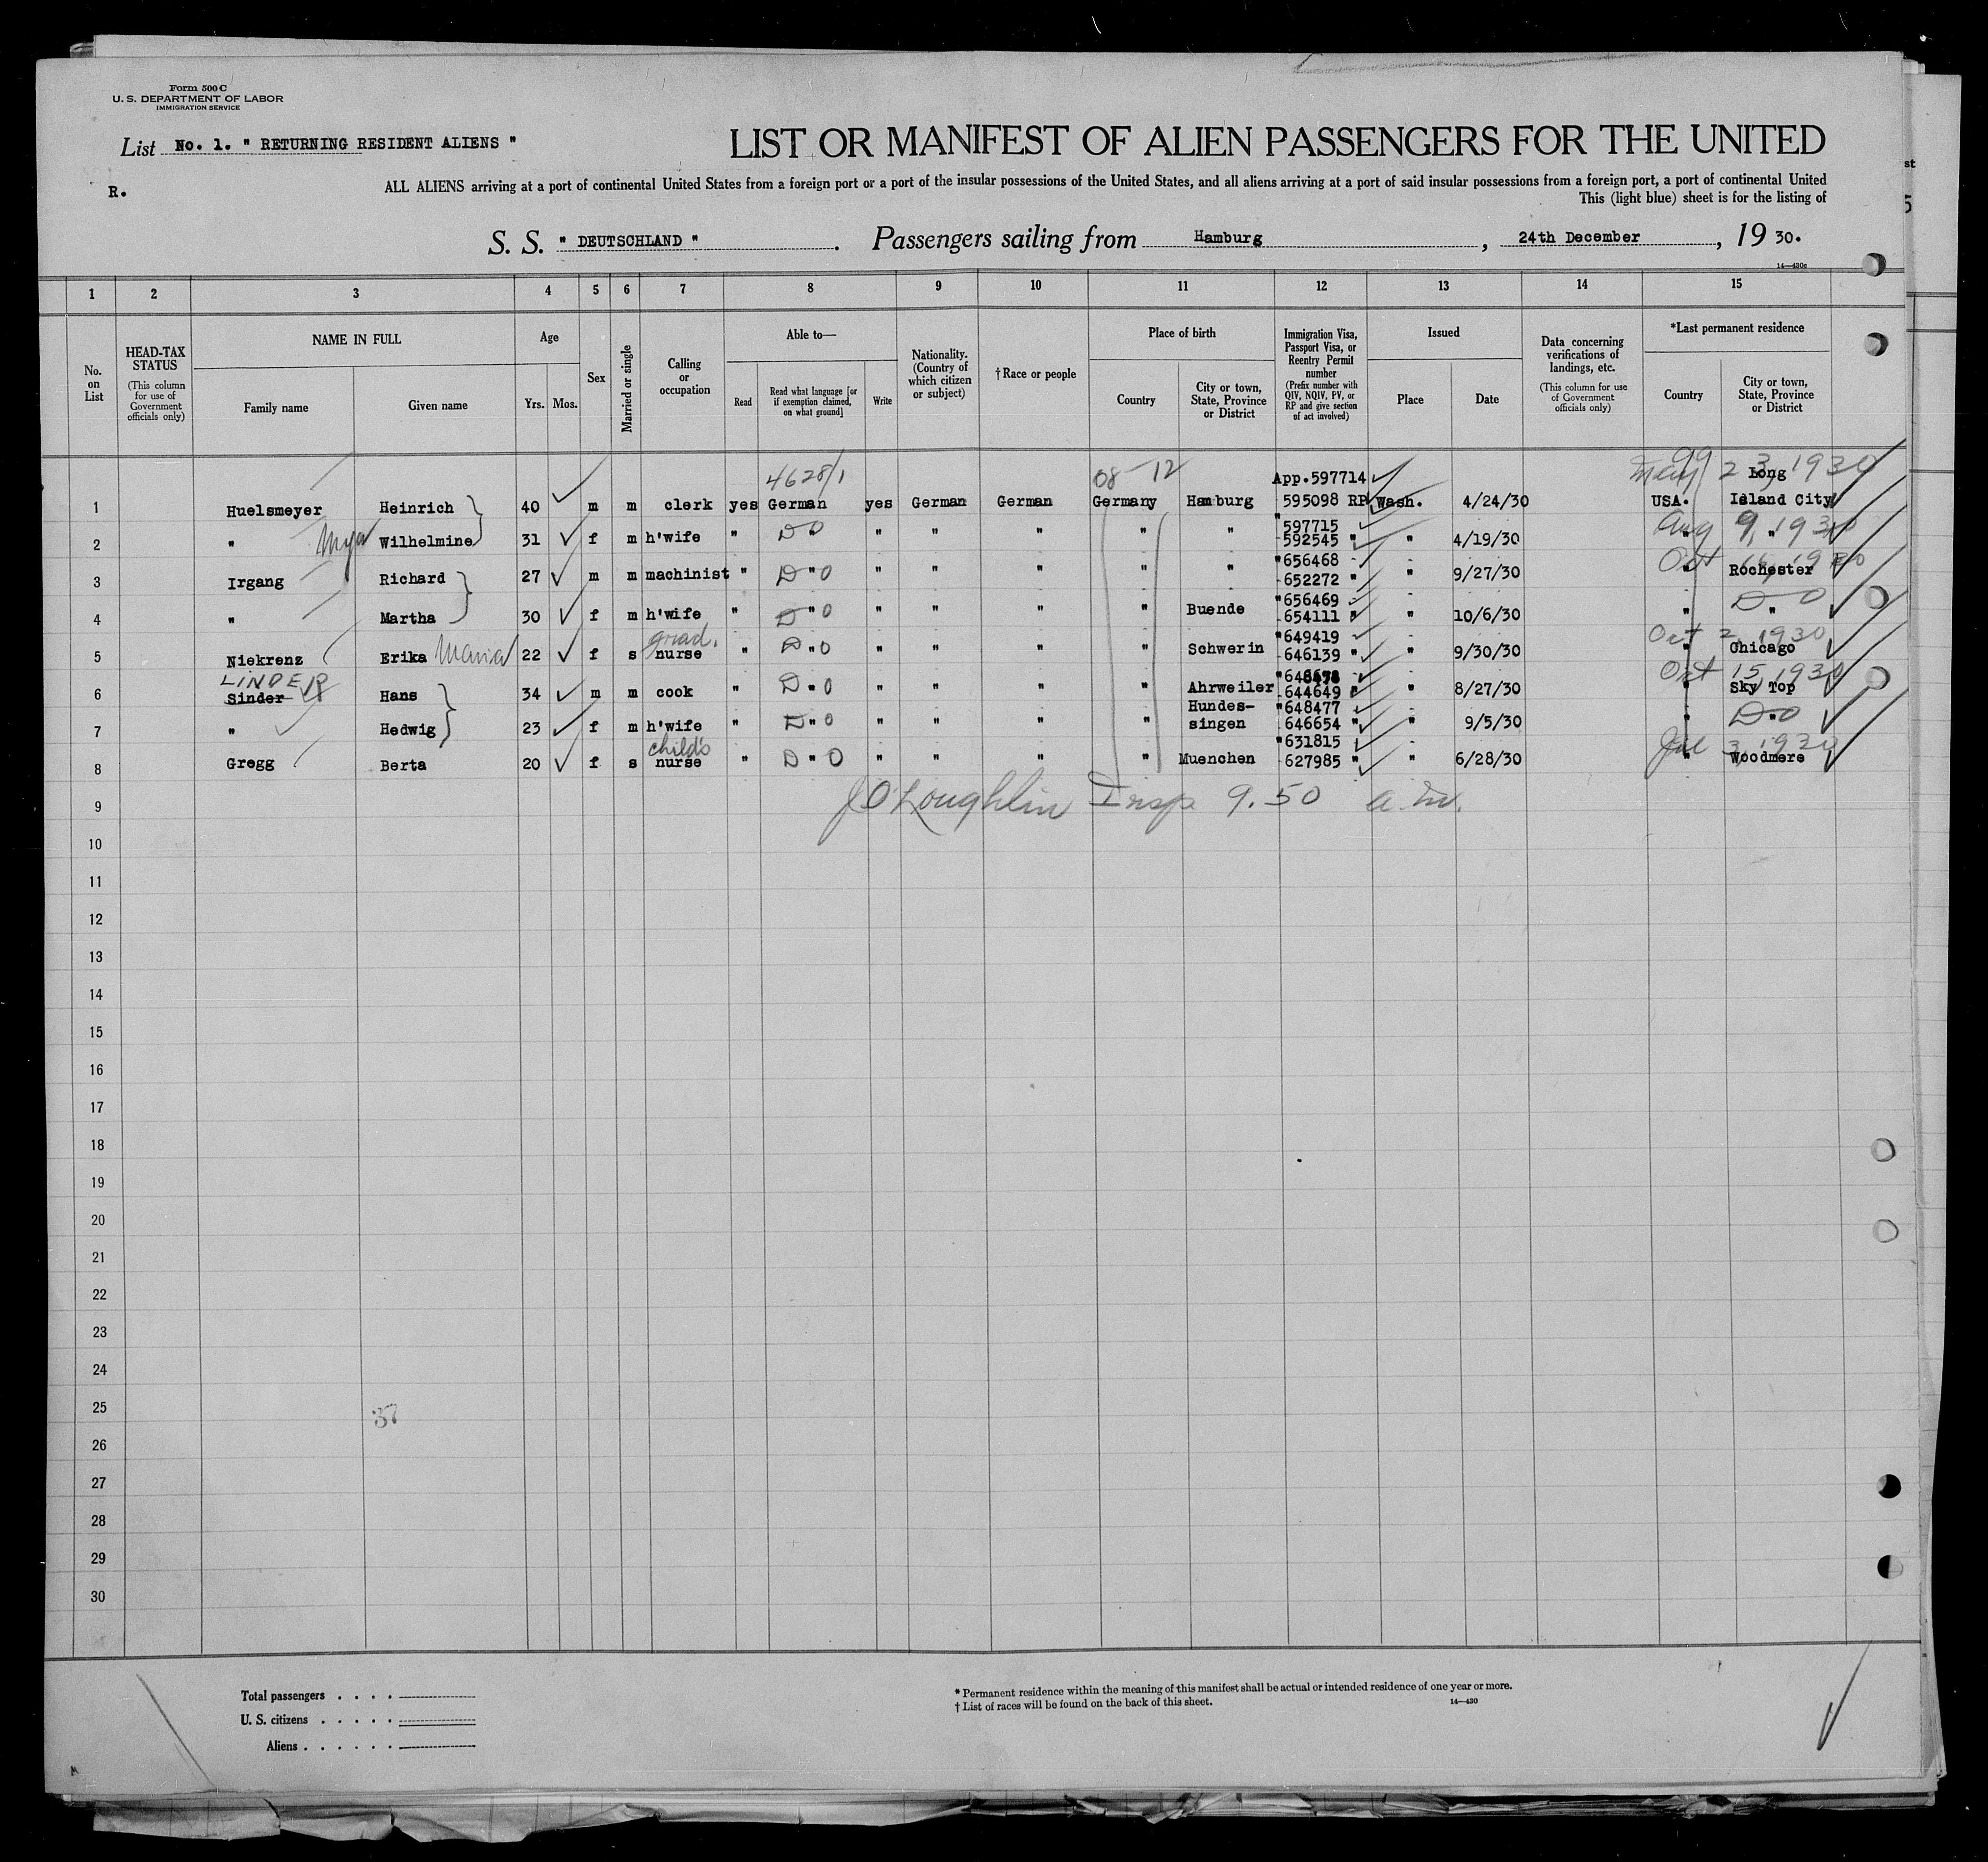 Form 500 C
U. S. DEPARTMENT OF LABOR
IMMIGRATION SERVICE
List No. 1. " RETURNING RESIDENT ALIENS "
R.
LIST OR MANIFEST OF ALIEN PASSENGERS FOR THE UNITED
ALL ALIENS arriving at a port of continental United States from a foreign port or a port of the insular possessions of the United States, and all aliens arriving at a port of said insular possessions from a foreign port, a port of continental United
This (light blue) sheet is for the listing of
S. S. " DEUTSCHLAND ". Passengers sailing from Hamburg, 24th December, 19 30.
14—430c
1 2 3 4 5 6 7 8 9 10 11 12 13 14 15
No. on List
HEAD-TAX STATUS (This column for use of Government officials only)
NAME IN FULL
Family name Given name
Age
Yrs. Mos.
Sex
Married or single
Calling or occupation
Able to—
Read Read what language [or if exemption claimed, on what ground] Write
Nationality. (Country of which citizen or subject)
†Race or people
Place of birth
Country City or town, State, Province or District
Immigration Visa, Passport Visa, or Reentry Permit number (Prefix number with QIV, NQIV, PV, or RP and give section of act involved)
Issued
Place Date
Data concerning verifications of landings, etc. (This column for use of Government officials only)
*Last permanent residence
Country City or town, State, Province or District
4628/1 08 12 App.597714 May 23, 1930 Long
1 Huelsmeyer Heinrich 40 m m clerk yes German yes German German Germany Hamburg 595098 RP Wash. 4/24/30 USA. Island City
" 597715 Aug 9, 1930
2 " Wilhelmine 31 f m h'wife " " DO " " " " " 592545 " " 4/19/30 " "
" 656468 Oct 1930
3 Irgang Richard 27 m m machinist " D " O " " " " " 652272 " " 9/27/30 " Rochester
" 656469 DO
4 " Martha 30 f m h'wife " D " O " " " " Buende 654111 " " 10/6/30 " "
grad. " 649419 Oct 2, 1930
5 Niekrenz Erika Maria 22 f s nurse " D " O " " " " Schwerin 646139 " " 9/30/30 " Chicago
LINDER Oct 15, 1930
6 Sinder Hans 34 m m cook " D " O " " " " Ahrweiler 644649 " " 8/27/30 " Sky Top
Hundes- " 648477 DO
7 " Hedwig 23 f m h'wife " D " O " " " " singen 646654 " " 9/5/30 " "
child's " 631815 Jul 3, 1930
8 Gregg Berta 20 f s nurse " D " O " " " " Muenchen 627985 " " 6/28/30 " Woodmere
9 J O'Loughlin Insp 9.50 a.m.
10
11
12
13
14
15
16
17
18
19
20
21
22
23
24
25 37
26
27
28
29
30
Total passengers . . . .
U. S. citizens . . . . .
Aliens . . . . . .
* Permanent residence within the meaning of this manifest shall be actual or intended residence of one year or more.
† List of races will be found on the back of this sheet.
14—430